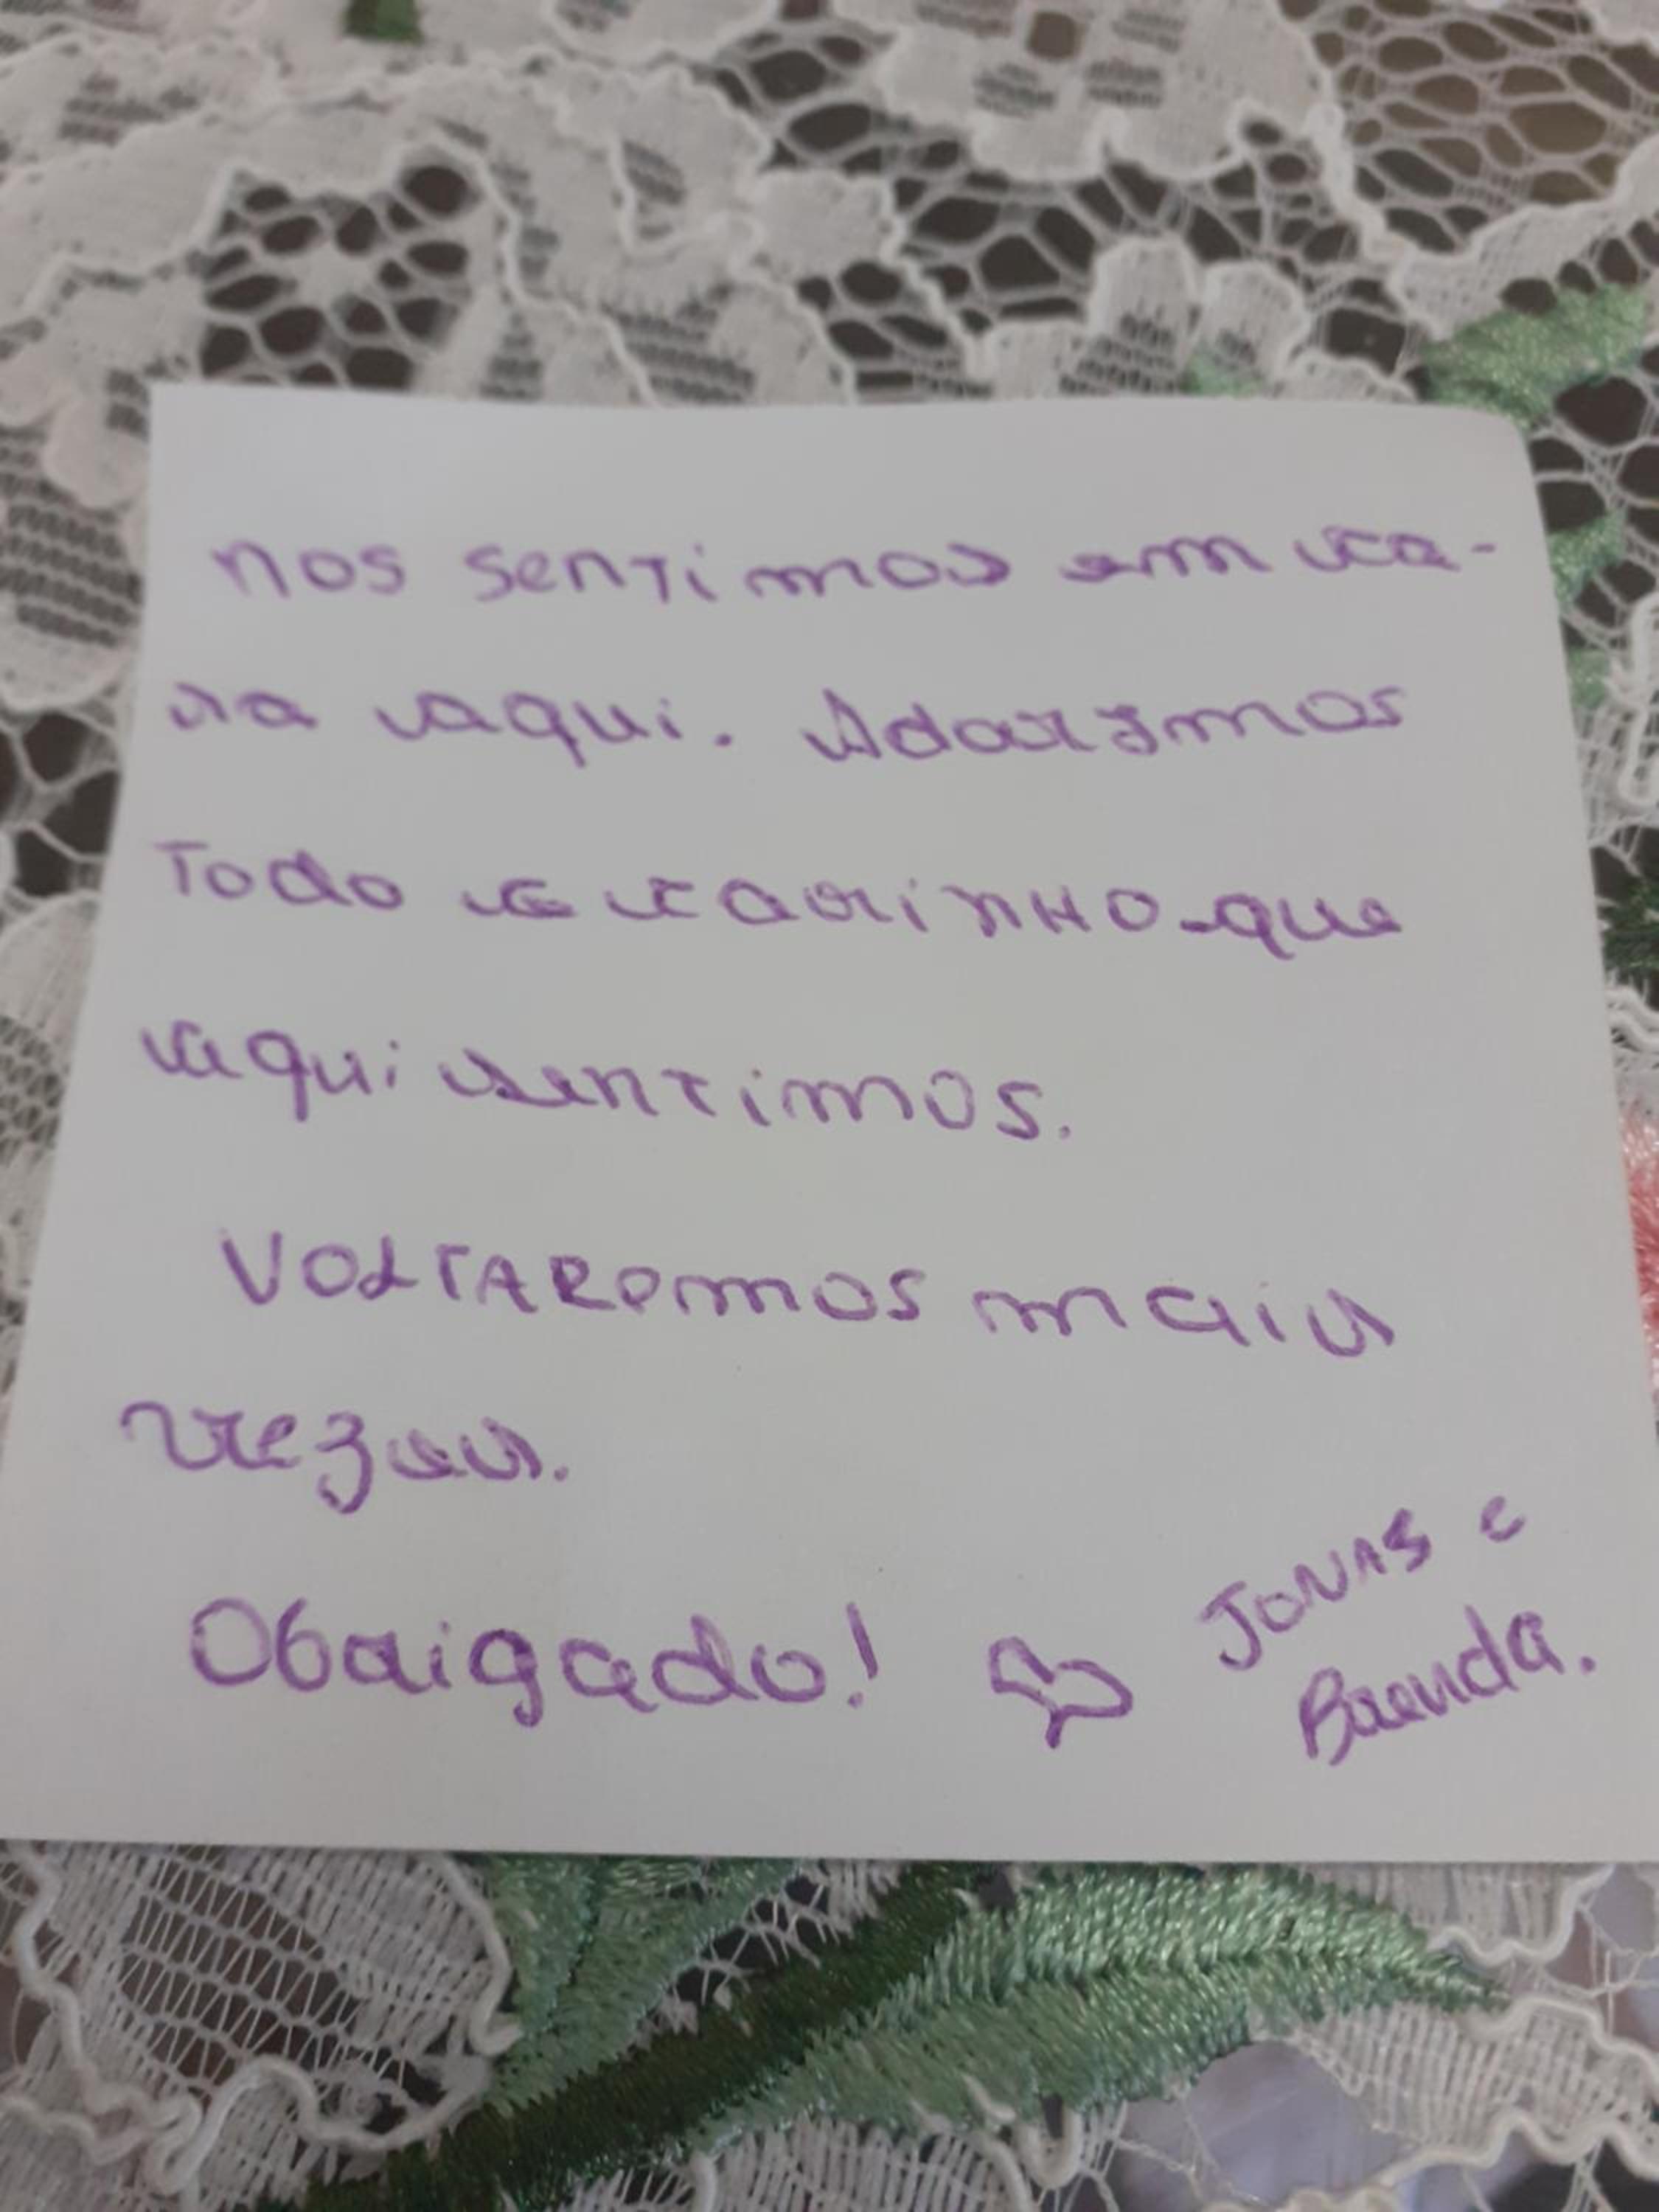 Nos sentimos em ca-
sa aqui. Adoramos
Todo o carinho que
aqui sentimos.
Voltaremos mais
vezes.
Obrigado! Jonas e
Brenda.